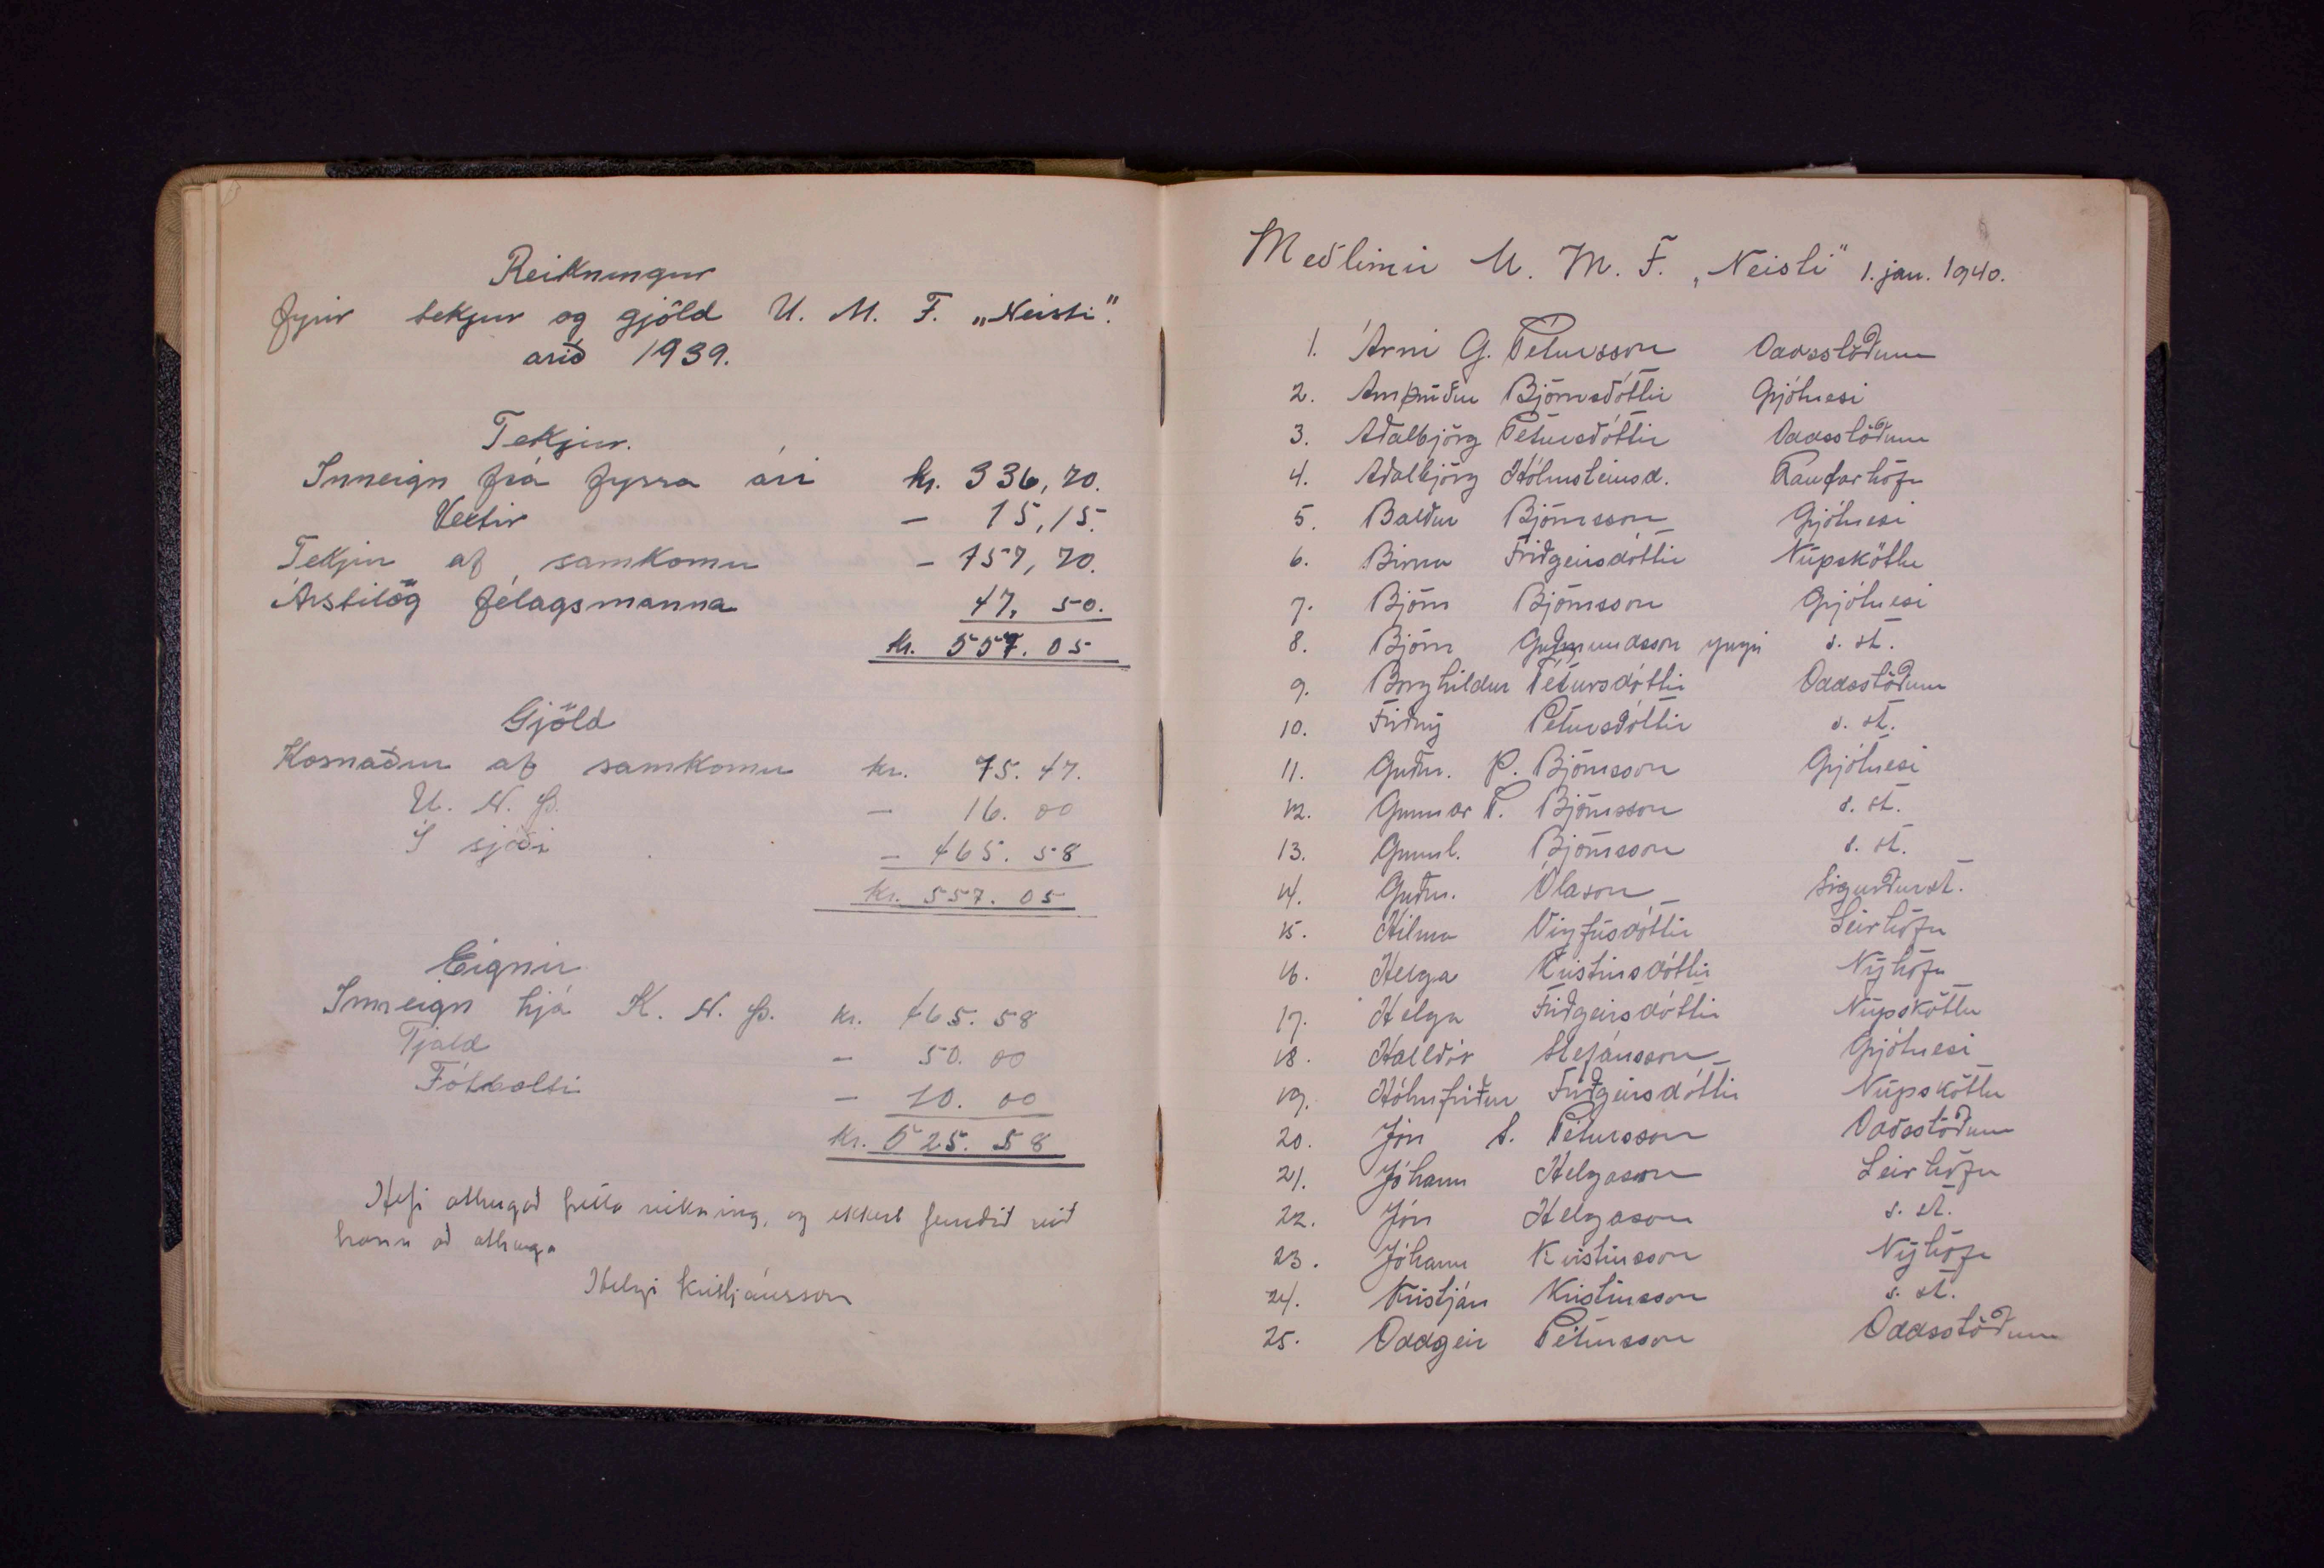 Reikningur
fyrir tekjur og gjöld U. M. F. „Neisti".
arið 1939.
Tekjur.
Inneign frá fyrra ári kr. 336,70.
Vextir — 15,15.
Tekjur af samkomu — 157,70.
Árstilög félagsmanna 47,50.
kr. 557.05
Gjöld
Kosnaður af samkomu kr. 75.47.
U. N. Þ. — 16.00
Í sjóði — 465.58
kr. 557.05
Eignir
Inneign hjá K. N. Þ. kr. 465.58
Tjald — 50.00
Fótbolti — 10.00
kr. 525.58
Hefi athugað þetta reikning, og ekkert fundið við
hann að athuga
Helgi Kristjánsson
Meðlimir U. M. F. „Neisti" 1. jan. 1940.
1. Árni G. Pétursson Oddsstöðum
2. Arnþrúður Björnsdóttir Grjótnesi
3. Aðalbjörg Pétursdóttir Oddsstöðum
4. Aðalbjörg Hólmsteinsd. Raufarhöfn
5. Baldur Björnsson Grjótnesi
6. Birna Friðgeirsdóttir Núpskötlu
7. Björn Björnsson Grjótnesi
8. Björn Guðmundsson yngri s. st.
9. Borghildur Pétursdóttir Oddsstöðum
10. Friðný Pétursdóttir s. st.
11. Guðm. P. Björnsson Grjótnesi
12. Gunnar P. Björnsson s. st.
13. Gunnl. Björnsson s. st.
14. Guðm. Ólason Sigurðarst.
15. Hilma Vigfúsdóttir Leirhöfn
16. Helga Kristinsdóttir Nýhöfn
17. Helga Friðgeirsdóttir Núpskötlu
18. Halldór Stefánsson Grjótnesi
19. Hólmfríður Friðgeirsdóttir Núpskötlu
20. Jón S. Pétursson Oddsstöðum
21. Jóhann Helgason Leirhöfn
22. Jón Helgason s. st.
23. Jóhann Kristinsson Nýhöfn
24. Kristján Kristinsson s. st.
25. Oddgeir Pétursson Oddsstöðum